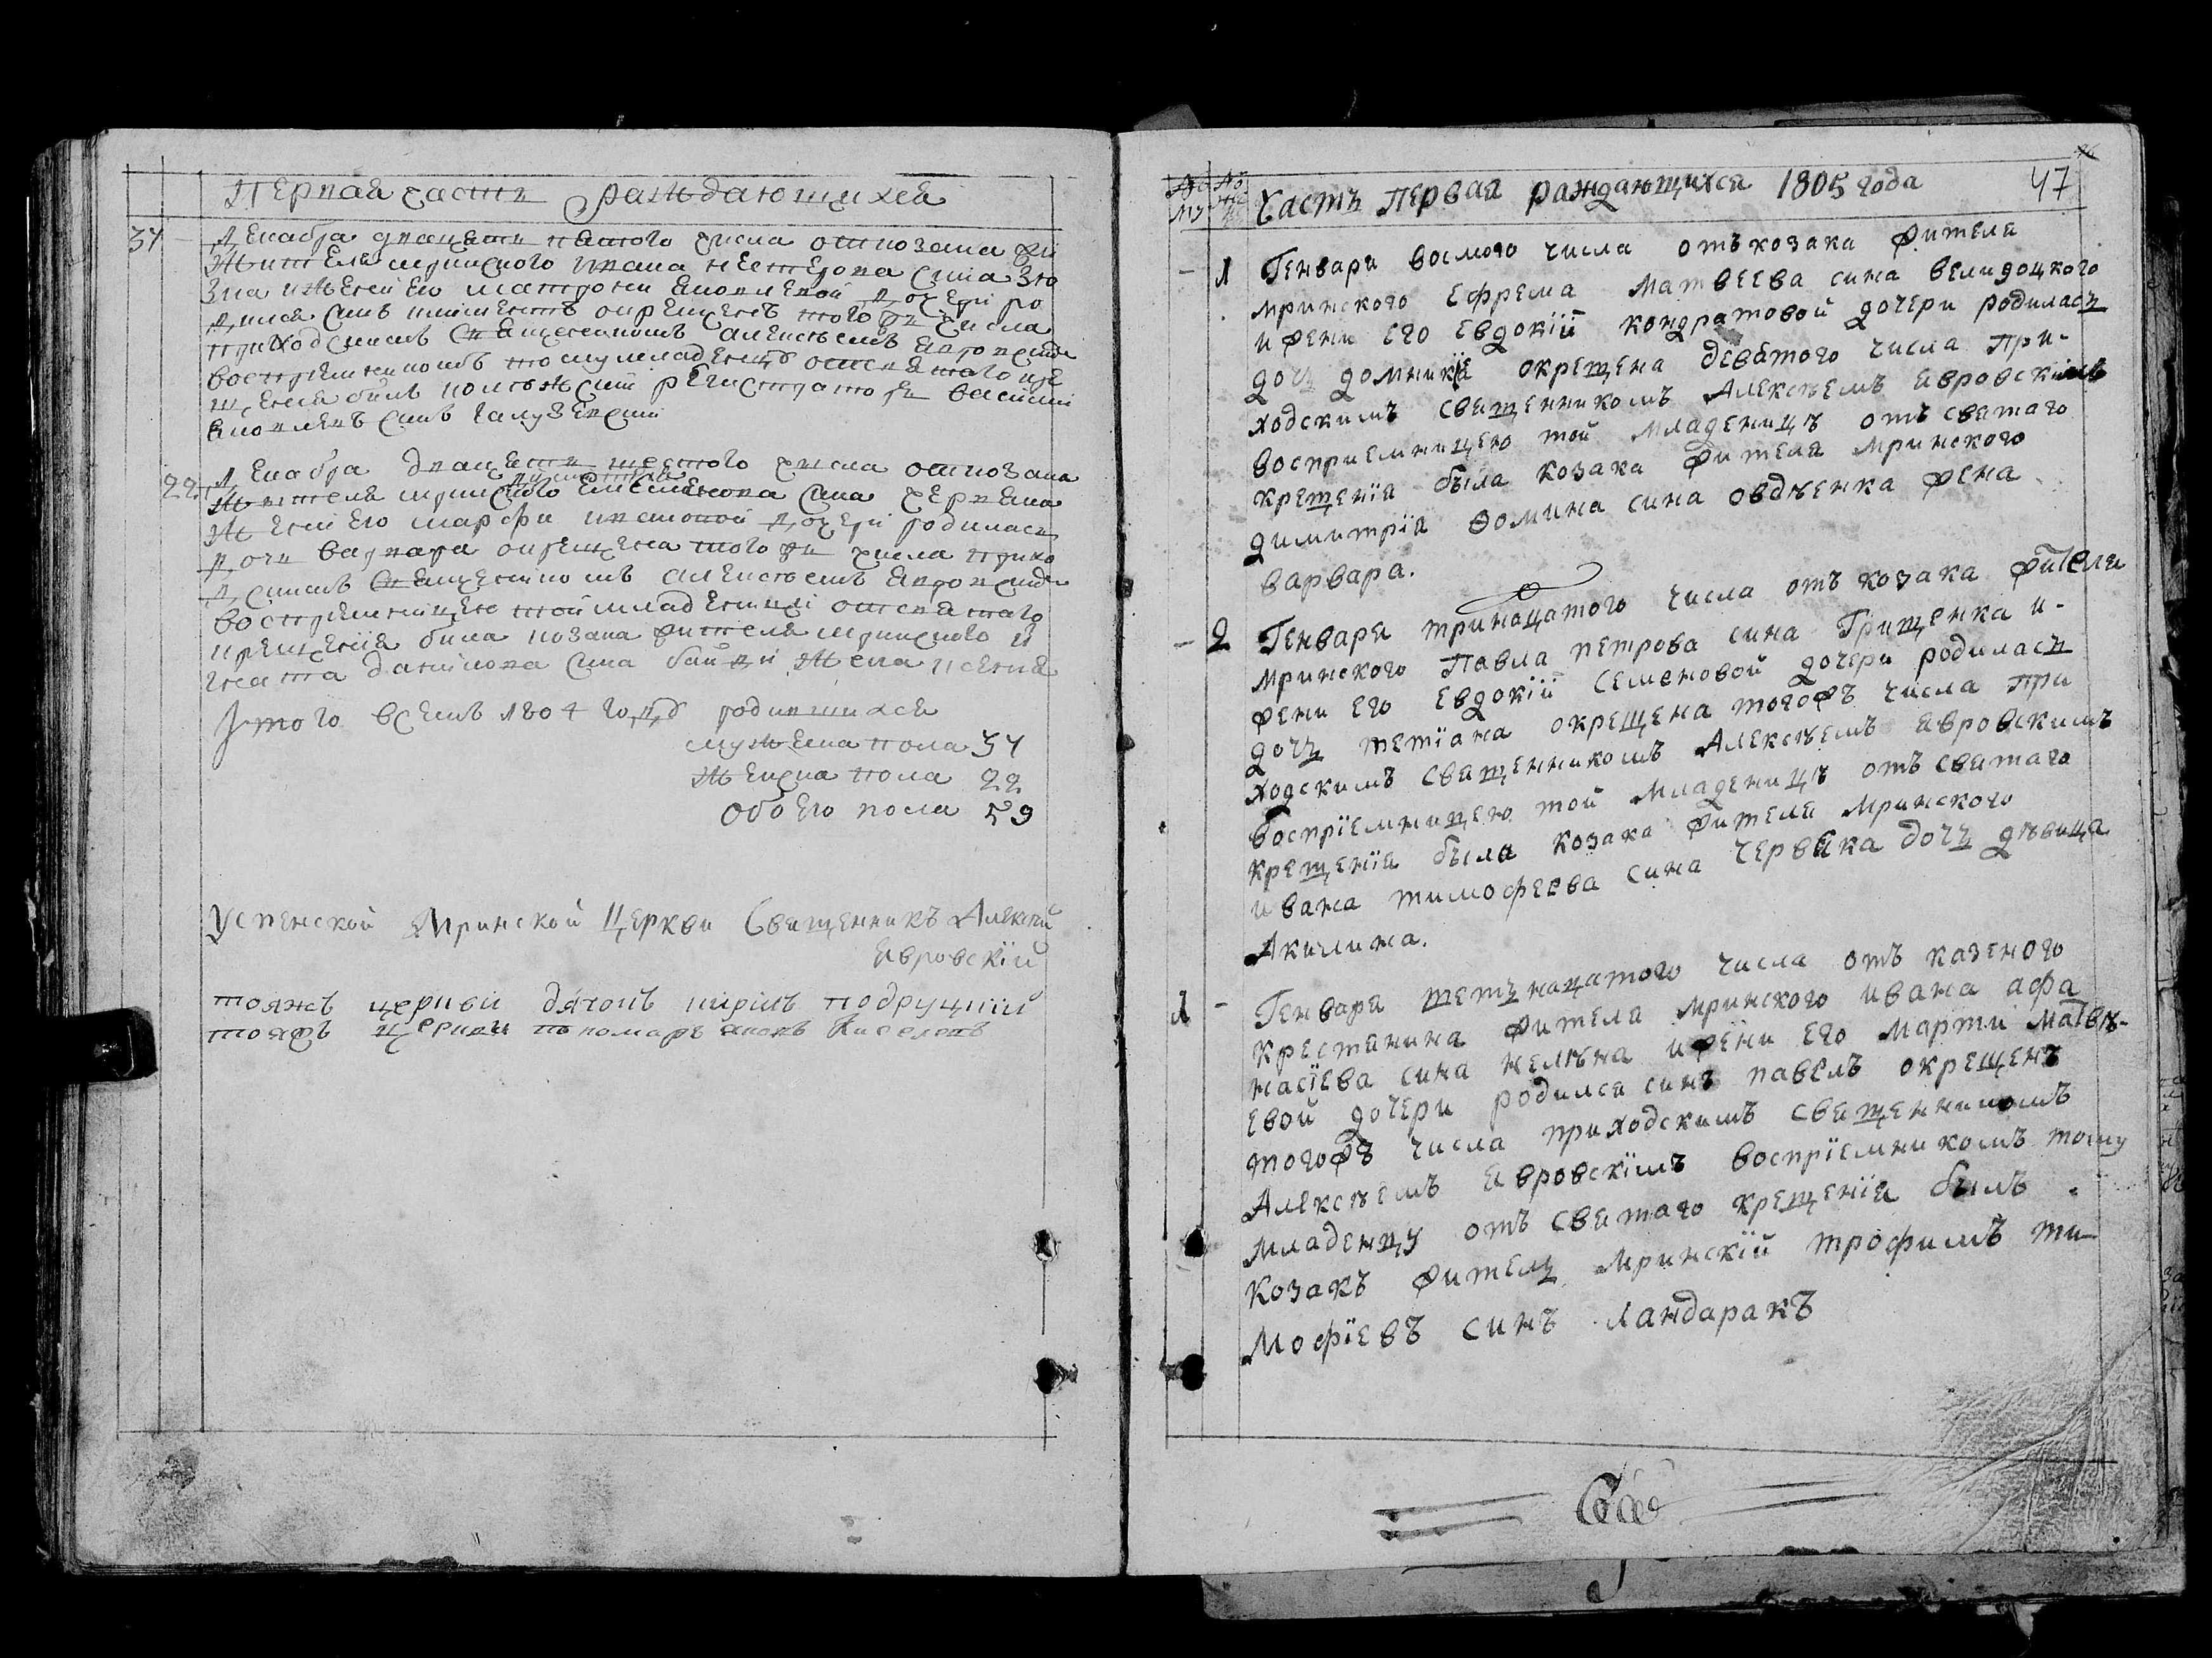 Первая часть раждающихся
37
Декабра двацать пятого числа от козака жи
жителя мринского ивана нестерова сина Зю
Зка и жени его матрони яковлевой дочери ро
дился синъ окрещенъ того ж числа
приходскимъ священникомъ алексѣемъ явровскимъ
восприемникомъ тому младенцу от святого кре
щения билъ колѣжский регистраторъ василий
яковлевъ синъ галузевский
22
Декабра двацать шестого числа от козака
жителя мринского емельянова сина червяка
жени его марфи ивановой дочери родилась
дочь варвара окрещена того ж числа прихо
дскимъ священникомъ алексѣемъ явровскимъ
восприемницею той младеници от святаго
крещения била козака жителя мринского и
гната данилова сина жена ксения
Ітого всемъ 1804 году родившихся
мужеска пола 37
женска пола 22
обоего пола 59
Успенской Мринской Церкви Священникъ Алексѣй
Явровскїй
тояжъ церкви дячокъ кирилъ подруцкий
тояжъ церкви пономаръ яковъ Киселевъ
Часть Первая раждающихся 1805 года
47
1
Генваря восмого числа отъ козака жителя
мринского Ефрема Матвеева сина велидоцкого
и жени его Евдокїй кондратовой дочери родилась
дочь домникїя окрещена девятого числа при-
ходскимъ священникомъ Алексѣемъ Явровскимъ
восприемницею той младеницѣ отъ святаго
крещенїя была козака жителя Мринского
димитрїя Ѳомина сина овдѣенка жена
варвара.
2
Генваря тринацатого числа отъ козака жителя
мринского Павла петрова сина Грищенка и-
жени его Евдокїй Семеновой дочери родилась
дочь тетїана окрещена тогожъ числа при
ходскимъ священникомъ Алексѣемъ Явровскимъ
воспрїемницею той младеницѣ отъ святаго
крещенїя была козака жителя Мринского
ивана тимофеева сина червяка дочь дѣвица
Акилина.
1
Генваря петьнацатого числа отъ казеного
крестянина жителя мринского ивана афа
насїева сина и жени его Марти Матвѣ-
евой дочери родился синъ павелъ окрещенъ
тогожъ числа приходскимъ священникомъ
Алексѣемъ Явровскїмъ воспрїемникомъ тому
младенцу отъ святаго крещенїя былъ
козакъ житель Мринскїй трофимъ ти-
мофїевъ синъ Ландаракъ